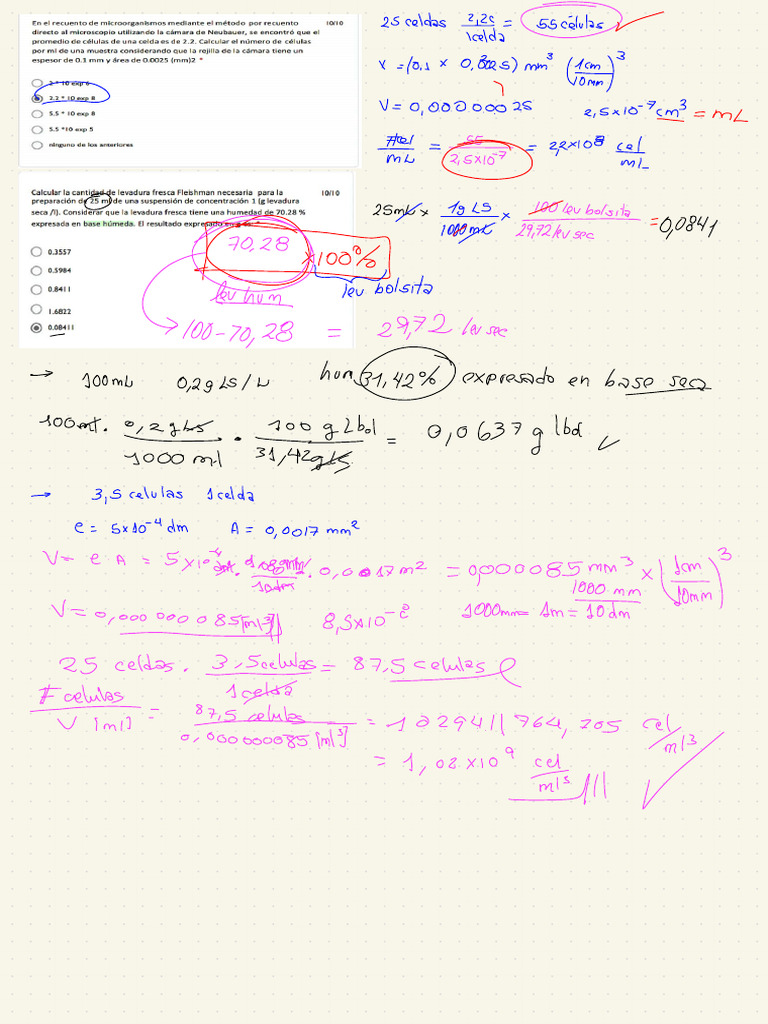 En el recuento de microorganismos mediante el método por recuento 10/10
directo al microscopio utilizando la cámara de Neubauer, se encontró que el
promedio de células de una celda es de 2.2. Calcular el número de células
por ml de una muestra considerando que la rejilla de la cámara tiene un
espesor de 0.1 mm y área de 0.0025 (mm)2 *
2 * 10 exp 6
2.2 * 10 exp 8
5.5 * 10 exp 8
5.5 *10 exp 5
ninguno de los anteriores
25 celdas 2,2c/1celda = 55 células
V = (0,1 × 0,0025) mm³ (1cm/10mm)³
V = 0,00000025 2,5×10⁻⁷ cm³ = mL
#cel/mL = 55/2,5×10⁻⁷ = 2,2×10⁸ cel/mL
Calcular la cantidad de levadura fresca Fleishman necesaria para la 10/10
preparación de 25 ml de una suspensión de concentración 1 (g levadura
seca /l). Considerar que la levadura fresca tiene una humedad de 70.28 %
expresada en base húmeda. El resultado expresado en g es: *
0.3557
0.5984
0.8411
1.6822
0.08411
25mL × 1g LS/1000mL × 100 lev bolsita/29,72 lev sec = 0,0841
70,28 ×100%
lev hum lev bolsita
100-70,28 = 29,72 lev sec
→ 100mL 0,2g LS/L hum 31,42% expresado en base seca
100ml. 0,2gLS/1000 ml . 100 g Lbol/31,42gLS = 0,0637g lbol
→ 3,5 celulas 1celda
e = 5×10⁻⁴ dm A = 0,0017 mm²
V = e A = 5×10⁻⁴ dm . /10dm . 0,0017m² = 0,000085 mm³ × (1cm/10mm)³
1000 mm
1000mm = 1m = 10dm
V = 0,000000085[ml³] 8,5×10⁻⁸
25 celdas . 3,5celulas/1celda = 87,5 celulas
# celulas/V [ml] = 87,5 celulas/0,000000085[ml³] = 1029411764,705 cel/ml3
= 1,02×10⁹ cel/ml³